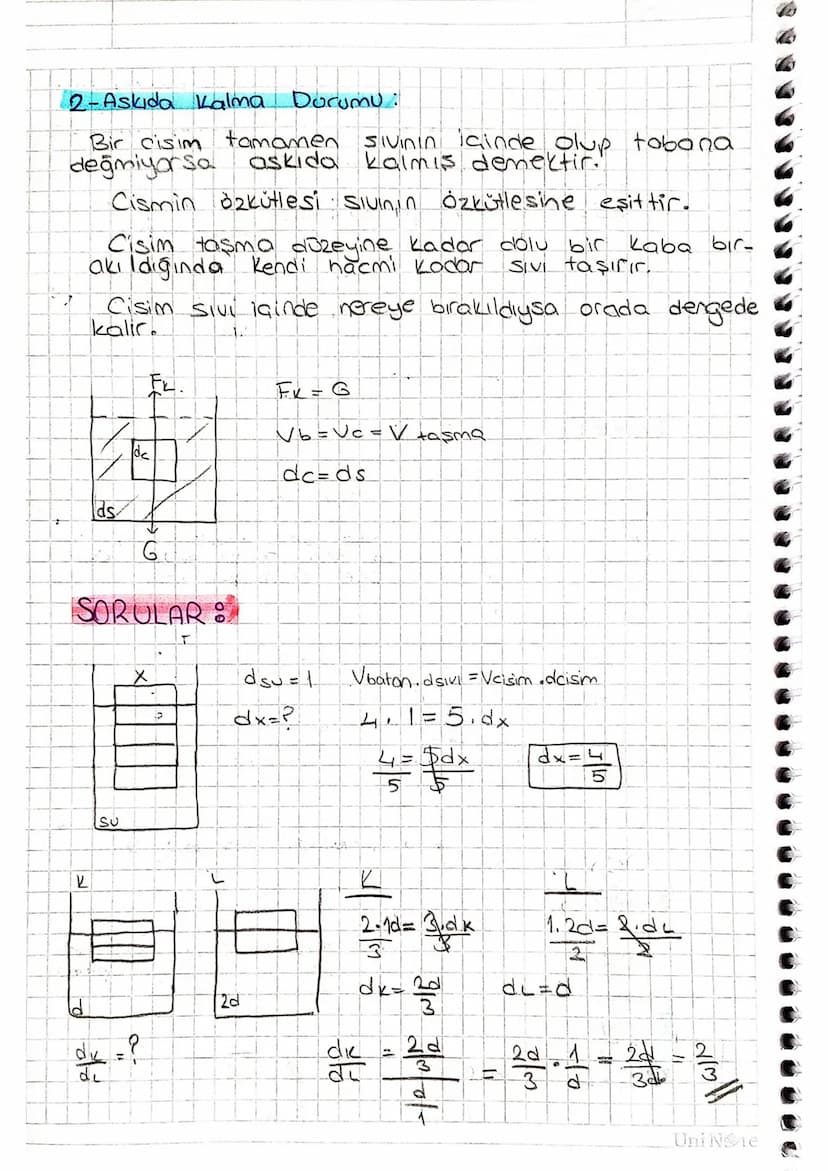 2-Askıda Kalma Durumu:
Bir cisim tamamen sıvının içinde olup tabana
değmiyorsa askıda kalmış demektir.
Cismin özkütlesi sıvının özkütlesine eşittir.
Cisim taşma düzeyine kadar dolu bir kaba bır-
akıldığında kendi hacmi kadar sıvı taşırır.
Cisim sıvı içinde nereye bırakıldıysa orada dengede
kalır.
FK
FK = G
Vb = Vc = V taşma
dc
dc = ds
ds
G
SORULAR:
X
dsu = 1 Vbatan.dsıvı = Vcisim.dcisim
dx=? 4.1 = 5.dx
4/5 = 5dx/5 dx = 4/5
su
K L K L
2.1d/3 = 3.dK/3 1.2d/2 = 2.dL/2
d 2d dK = 2d/3 dL = d
dK/dL = ? dK/dL = 2d/3 / d/1 = 2d/3 . 1/d = 2d/3d = 2/3
UniNote